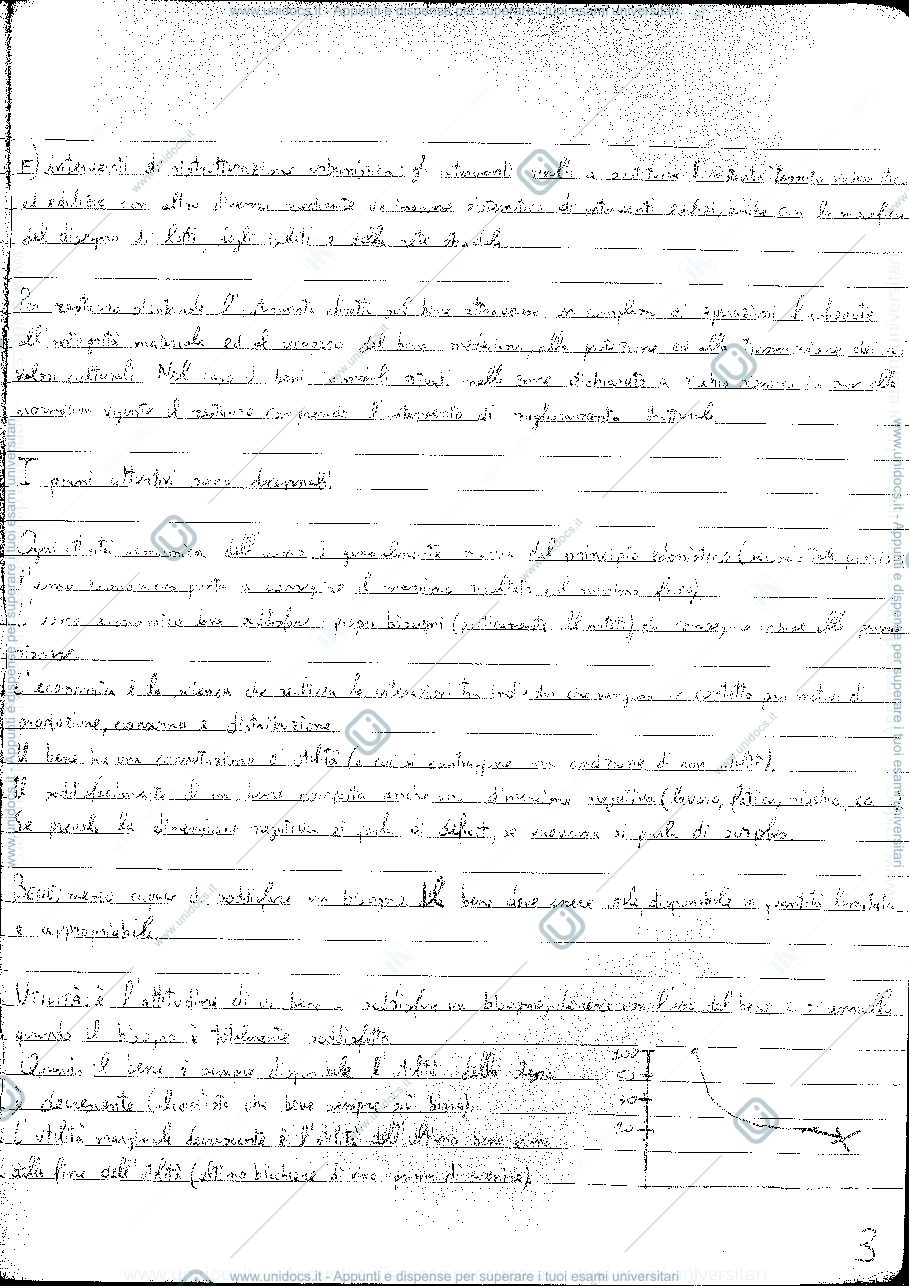 www.unidocs.it - Appunti e dispense per superare i tuoi esami universitari
E) interventi di ristrutturazione urbanistica: gli interventi rivolti a sostituire l'esistente tessuto urbanistico
ed edilizio con altro diverso mediante un insieme sistematico di interventi edilizi anche con la modifica
del disegno di lotti, degli isolati e della rete stradale
Per restauro si intende l'intervento diretto sul bene attraverso un complesso di operazioni finalizzate
all'integrità materiale ed al recupero del bene medesimo, alla protezione ed alla trasmissione dei suoi
valori culturali. Nel caso di beni immobili situati nelle zone dichiarate a rischio sismico in base alla
normativa vigente il restauro comprende l'intervento di miglioramento strutturale
I piani attuativi sono decennali.
Ogni attività economica dell'uomo è generalmente mossa dal principio edonistico
l'uomo economicus porta a conseguire il massimo risultato col minimo sforzo)
uomo economico deve soddisfare i propri bisogni
risorse
L'economia è la scienza che studia le interazioni tra individui che vengono in contatto per motivi di
produzione, consumo e distribuzione
Il bene ha una connotazione di utilità (a cui si contrappone una condizione di non utilità).
Il soddisfacimento di un bene comporta anche una dimensione negativa (lavoro, fatica, rischio, ecc
Se prevale la dimensione negativa si parla di deficit, se viceversa si parla di surplus.
Bene: mezzo capace di soddisfare un bisogno. Il bene deve essere utile, disponibile in quantità limitata
e appropriabile.
Utilità: è l'attitudine di un bene a soddisfare un bisogno, decresce con l'uso del bene e si annulla
quando il bisogno è totalmente soddisfatto
Quando il bene è sempre disponibile l'utilità dello stesso
è decrescente
L'utilità marginale decrescente è l'utilità dell'ultimo bene prima
della fine dell'utilità (ultimo bicchiere di vino prima di morire).
100
50
30
20
3
www.unidocs.it - Appunti e dispense per superare i tuoi esami universitari